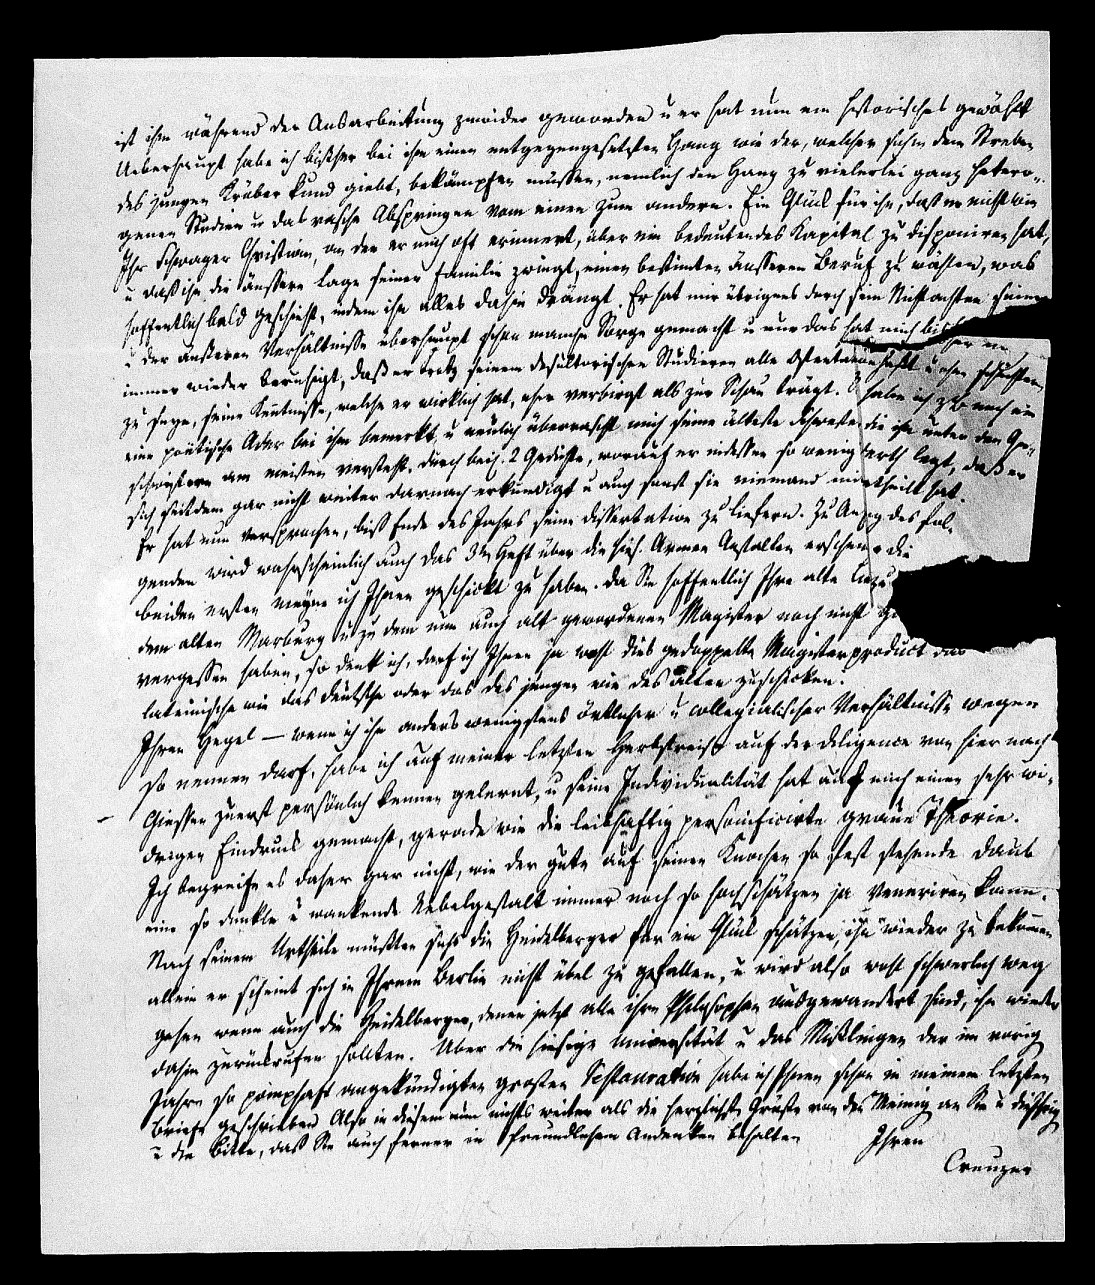 ist ihm während der Ausarbeitung zuwider geworden u er hat nun ein historisches gewählt
Ueberhaupt habe ich bisher bei ihm einen entgegengesetzten Hang wie der, welcher sich in dem Streben
des jungen Kröber kund giebt, bekämpfen müssen, nemlich den Hang zu vielerlei ganz hetero-
genen Studien u das rasche Abspringen vom einen zum andern. Ein Glück für ihn, daß er nicht wie
Ihr Schwager Christian, an den er mich oft erinnert, über ein bedeutendes Kapital zu disponiren hat,
u daß ihn die äussere Lage seiner Familie zwingt, einen bestimten äusseren Beruf zu wählen, was
hoffentlich bald geschieht, indem ihn alles dahin drängt. Er hat mir übrigens durch sein Nichtachten seiner
u der äusseren Verhältnisse überhaupt schon manche Sorge gemacht u nur das hat mich bisher
immer wieder beruhigt, daß er trotz seinem desultorischen Studieren alle Ostentation haßt u eher
zu sagen, seine Kentnisse, welche er wirklich hat, eher verbirgt als zur Schau trägt. habe ich zB nach
eine poëtische Ader bei ihm bemerkt, u neulich überraschte mich seine älteste Schwester, die ihn unter den Ge-
schwistern am meisten versteht, durch 2 Gedichte, worauf er indessen so wenig Werth legt, daß er
sich seitdem gar nicht weiter darnach erkundigt u auch sonst sie niemand mitgetheilt hat.
Er hat nun versprochen, biß Ende des Jahrs seine Dissertation zu liefern. Zu Anfang des fol-
genden wird wahrscheinlich auch das 3te Heft über die hies. Armen Anstalten erscheinen die
beiden ersten meyne ich Ihnen geschickt zu haben. Da Sie hoffentlich Ihre alte
dem alten Marburg u zu dem nun auch alt gewordenen Magister noch nicht
vergessen haben, so denk ich, darf ich Ihnen ja wohl dies gedoppelte Magisterproduct das
lateinische wie das deutsche oder das des jungen wie des alten zuschicken.
Ihren Hegel — wenn ich ihn anders wenigstens örtlicher u collegialischer Verhältnisse wegen
so nennen darf, habe ich auf meiner letzten Herbstreise auf der Diligence von hier nach
Giessen zuerst persönlich kennen gelernt, u seine Individualität hat auf mich einen sehr wi-
drigen Eindruck gemacht, gerade wie die leibhaftig personificirte graue Theorie.
Ich begreife es daher gar nicht, wie der gute auf seinen Knochen so fest stehende Daub
eine so dunkle u wankende Nebelgestalt immer noch so hochschätzen ja veneriren kann.
Nach seinem Urtheile müßten sichs die Heidelberger für ein Glück schätzen, ihn wieder zu bekommen
allein er scheint sich in Ihrem Berlin nicht übel zu gefallen, u wird also wohl schwerlich weg
gehen wenn auch die Heidelberger, denen jetzt alle ihre Philosophen ausgewandert sind, ihn wieder
dahin zurückrufen sollten. Über die hiesige Universität u das Mißlingen der im vorig
Jahre so pomphaft angekündigten grossen Restauration habe ich Ihnen schon in meinem letzten
Briefe geschrieben Also in diesem nun nichts weiter als die herzlichste Grüße von den Meinig an Sie u
u die Bitte, daß Sie auch ferner in freundlichem Andenken behalten Ihren
Creuzer